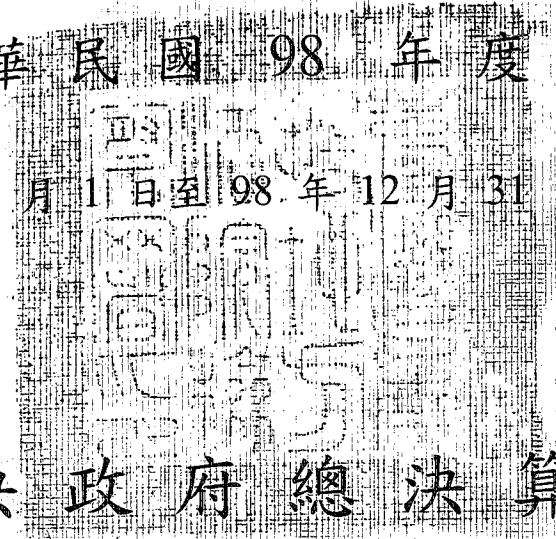 華民國 98 年度
月 1 日至 98 年 12 月 31
央政府總決算